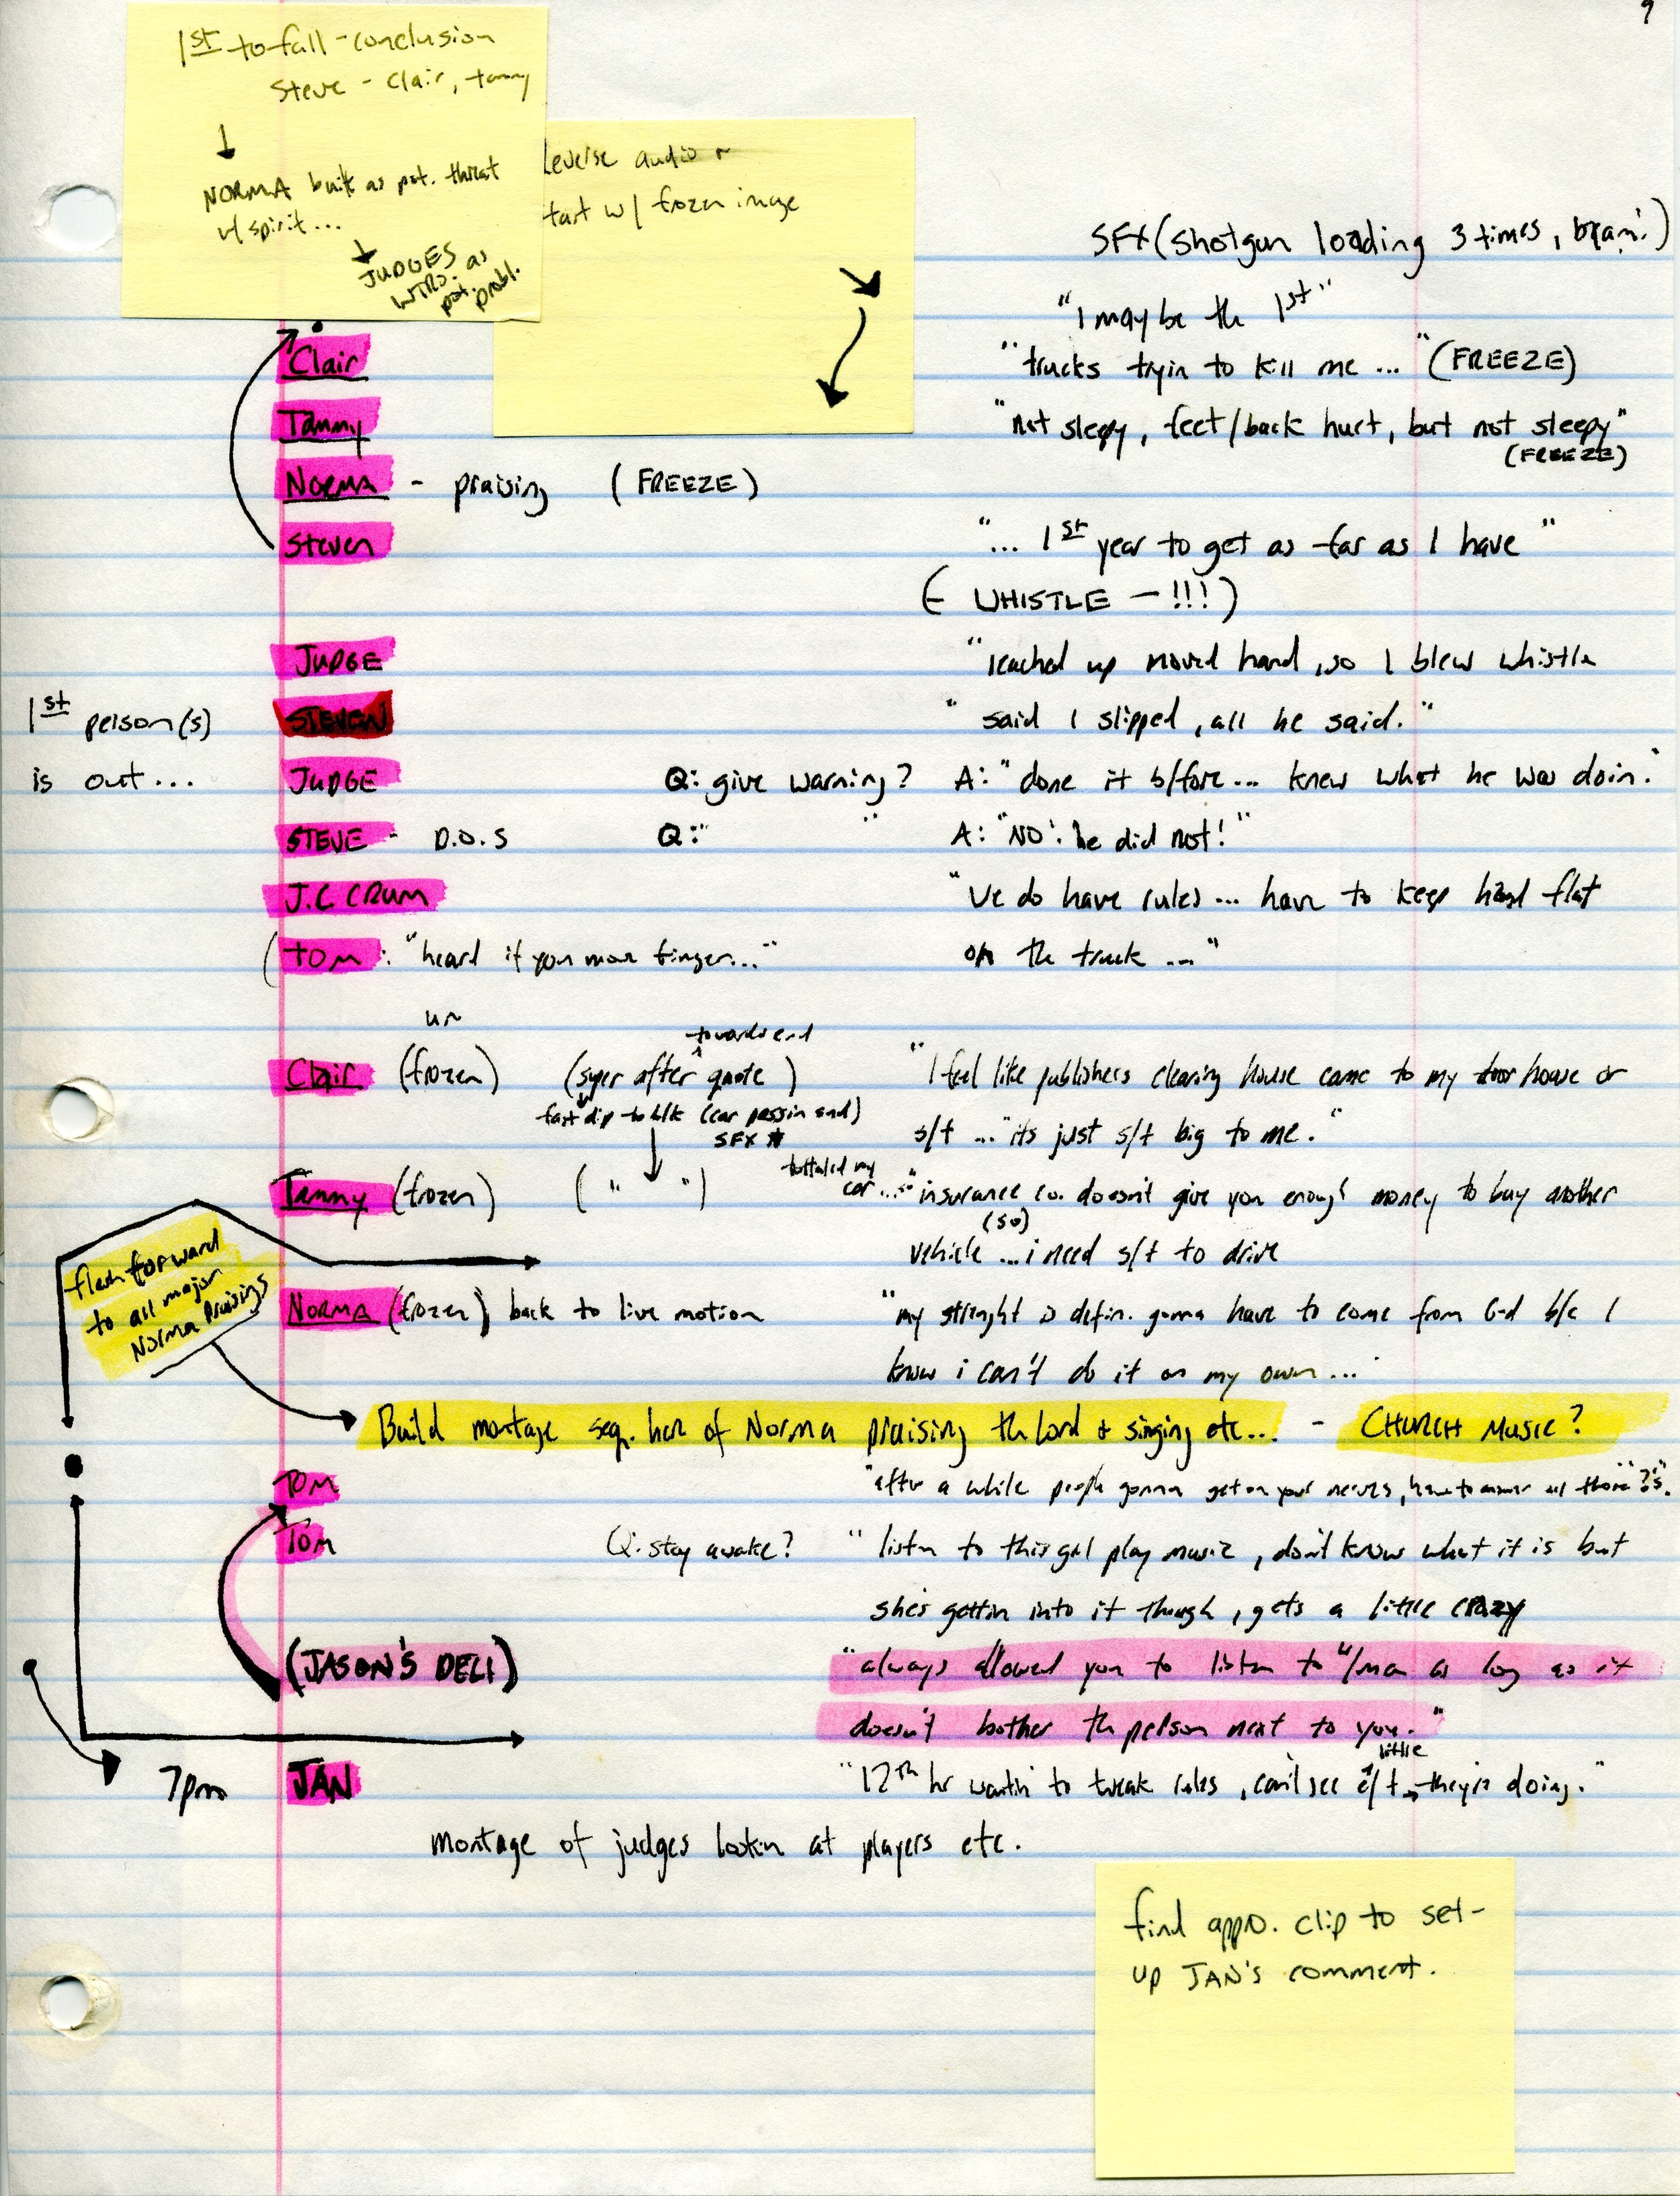 9
1st to fall - conclusion
Steve - Clair, tammy
NORMA built as pot. threat
w/ spirit...
JUDGES
INTRO. as
pot. probl.
everse audio
tart w/ frozen image
SFX (shotgun loading 3 times, bxam!)
"I may be th 1st"
Clair "trucks tryin to kill me ..." (FREEZE)
Tammy "not sleepy, feet/back hurt, but not sleepy"
(FREEZE)
NORMA - praising (FREEZE)
Steven "... 1st year to get as far as I have"
(- WHISTLE - !!!)
JUDGE "reached up moved hand, so I blew whistle
1st person(s) STEVEN "said I slipped, all he said."
is out... JUDGE Q: give warning? A: "done it b/fore... knew what he was doin."
STEVE - D.O.S Q: " " A: "NO! he did not!"
J.C. CRUM "We do have rules... have to keep hand flat
(TOM: "heard if you move finger..." on the truck ..."
un
towards end
Clair (frozen) (super after quote) "I feel like publishers clearing house came to my door house or
fast dip to blk (car passin snd)
SFX
s/t ... "its just s/t big to me."
tottaled my
car ..."
Tammy (frozen) (" ") insurance co. doesn't give you enough money to buy another
(so)
vehicle ... i need s/t to drive
flash forward
to all major
Norma Praisings
NORMA (frozen) back to live motion "my strenght is defin. gonna have to come from G-d b/c I
know i can't do it on my own...
Build montage seq. here of Norma praising th lord + singing etc... - CHURCH MUSIC?
TOM "after a while people gonna get on your nerves, have to answer all those "?'s".
TOM Q: stay awake? "listn to this girl play music, don't know what it is but
she's gettin into it though, gets a little crazy
(JASON'S DELI) "always allowed you to listen to w/man as long as it
doesn't bother th person next to you."
little
7pm JAN "12th hr wantin' to tweak rules, can't see e/t they're doing."
montage of judges lookin at players etc.
find appro. clip to set-
up JAN's comment.